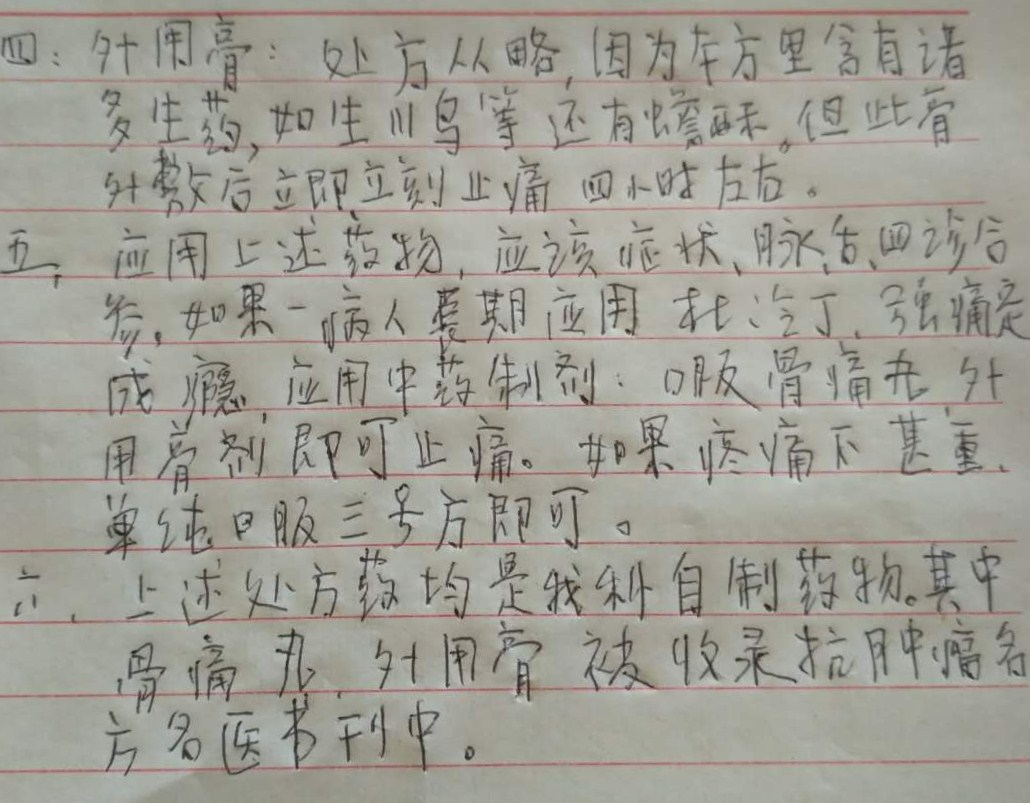 四：外用膏：处方从略，因为本方里含有诸
多生药，如生川乌等还有蟾酥。但此膏
外敷后立即立刻止痛四小时左右。
五、应用上述药物，应该症状、脉、舌、四诊合
参。如果一病人長期应用杜冷丁、强痛定
成瘾，应用中药制剂：口服骨痛丸，外
用膏剂即可止痛。如果疼痛不甚重、
单纯口服三号方即可。
六、上述处方药均是我科自制药物。其中
骨痛丸、外用膏被收录抗肿瘤名
方名医书刊中。